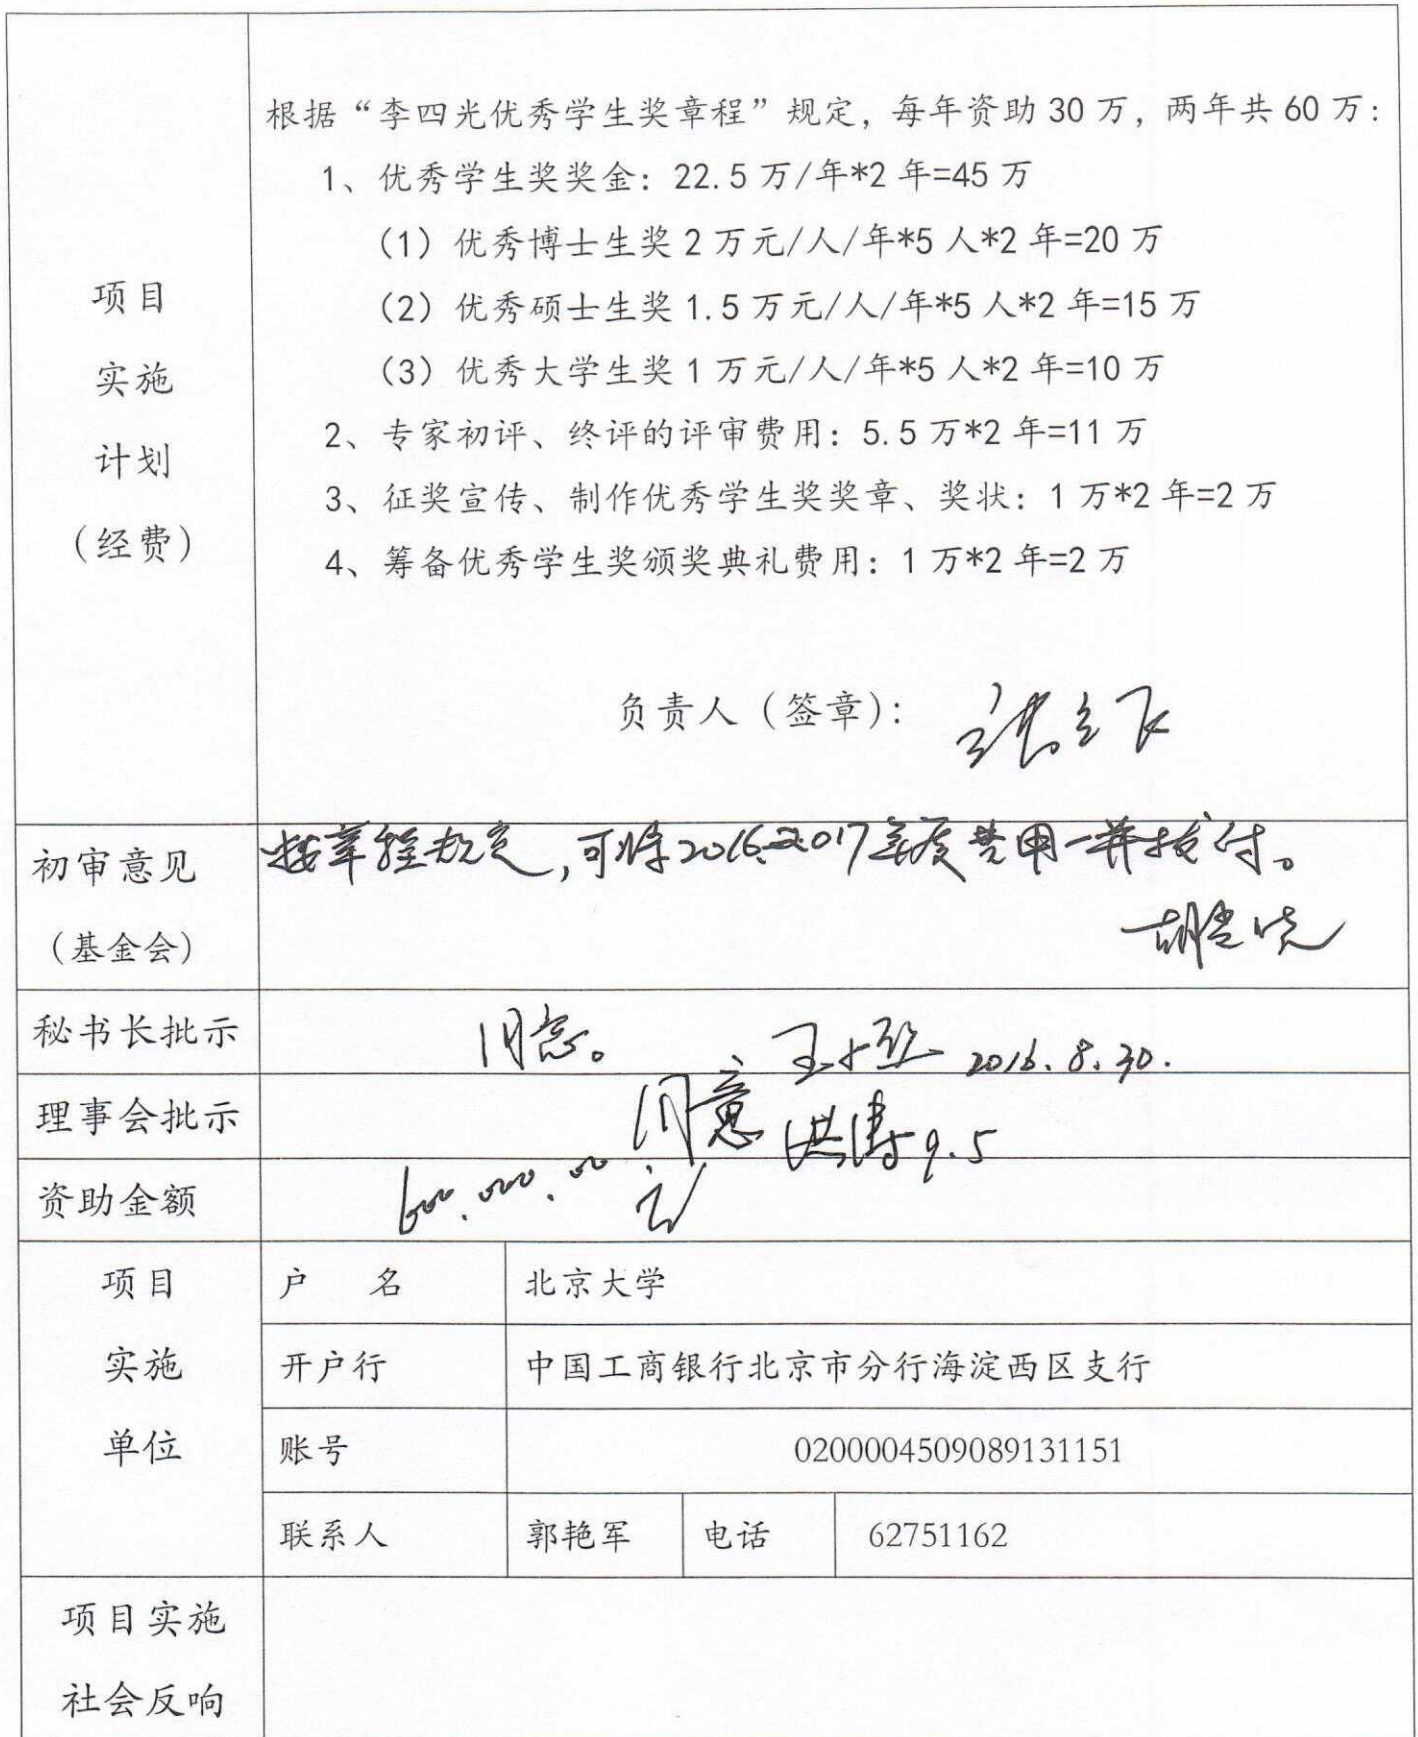 根据“李四光优秀学生奖章程”规定，每年资助30万，两年共60万：
1、优秀学生奖奖金：22.5万/年*2年=45万
（1）优秀博士生奖2万元/人/年*5人*2年=20万
（2）优秀硕士生奖1.5万元/人/年*5人*2年=15万
（3）优秀大学生奖1万元/人/年*5人*2年=10万
2、专家初评、终评的评审费用：5.5万*2年=11万
3、征奖宣传、制作优秀学生奖奖章、奖状：1万*2年=2万
4、筹备优秀学生奖颁奖典礼费用：1万*2年=2万
项目
实施
计划
（经费）
负责人（签章）：张立飞
初审意见
（基金会）
按章程规定，可将2016、2017年度费用一并拨付。
秘书长批示
同意。 2016.8.30.
理事会批示
同意 洪涛 9.5
资助金额
600,000.00元
项目
实施
单位
户 名 北京大学
开户行 中国工商银行北京市分行海淀西区支行
账号 0200004509089131151
联系人 郭艳军 电话 62751162
项目实施
社会反响